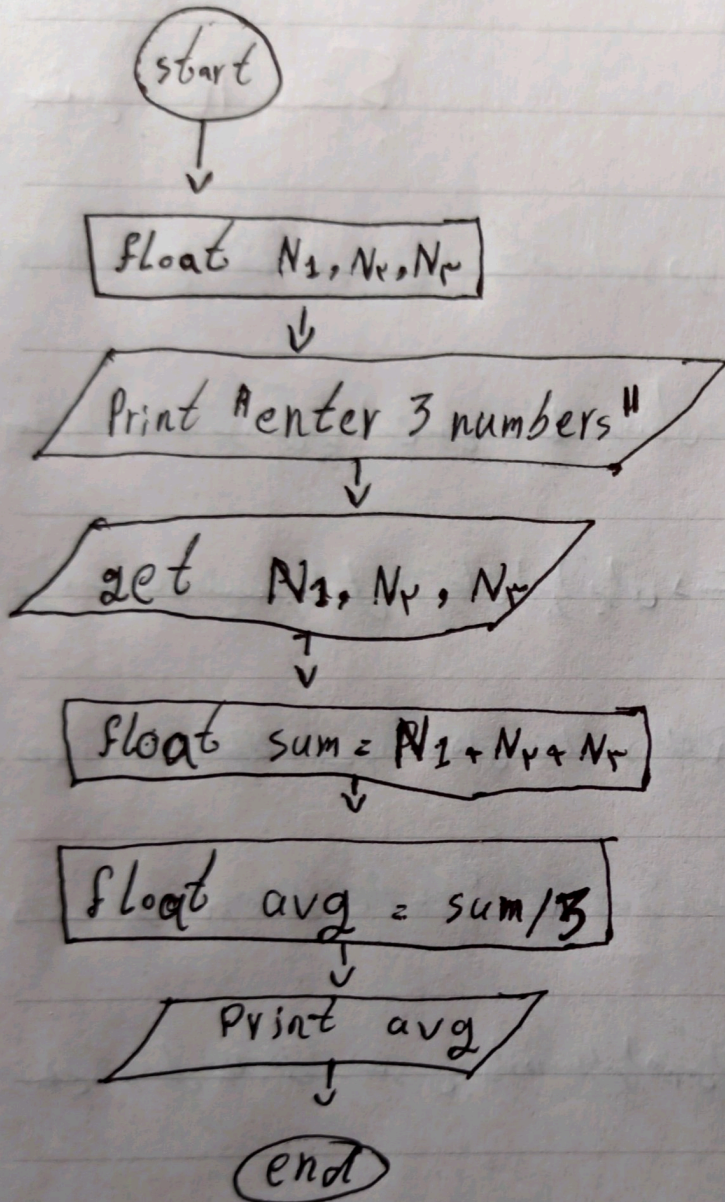 start
float N1, N٢, N٣
Print "enter 3 numbers"
get N1, N٢, N٣
float sum = N1 + N٢ + N٣
float avg = sum/3
Print avg
end